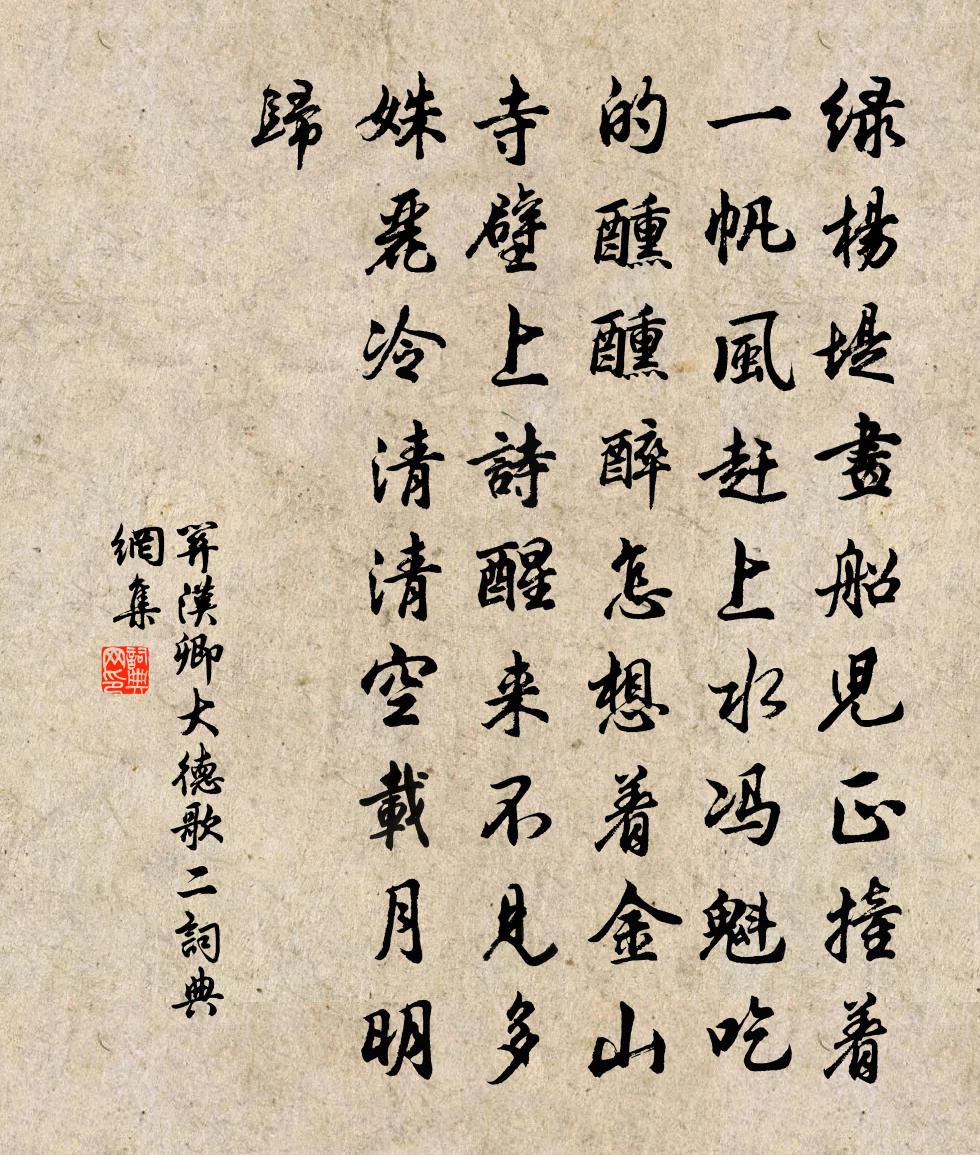 绿楊堤畫船兒正撞着
一帆風赶上水冯魁吃
的醺醺醉怎想着金山
寺壁上詩醒来不見多
姝麗冷清清空載月明
歸
關漢卿大德歌二詞典
網集
詞典
网印